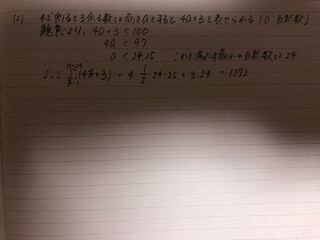 (2) 4で割ると3余る数は商をaとすると 4a+3と表せられる (a:自然数)
題意より、4a+3 < 100
4a < 97
a < 24.25 これを満たす最大の自然数は24
よって (4k+3) = 4・1/2・24・25 + 3・24 = 1272